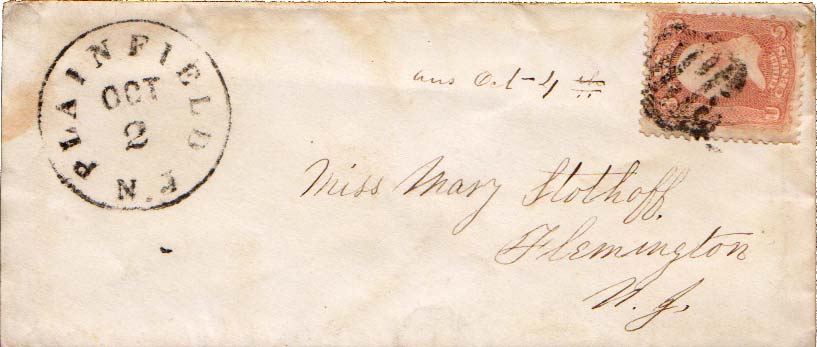 PLAINFIELD N.J.
OCT
2
ans Oct - 4 th
Miss Mary Stothoff,
Flemington
N. J.